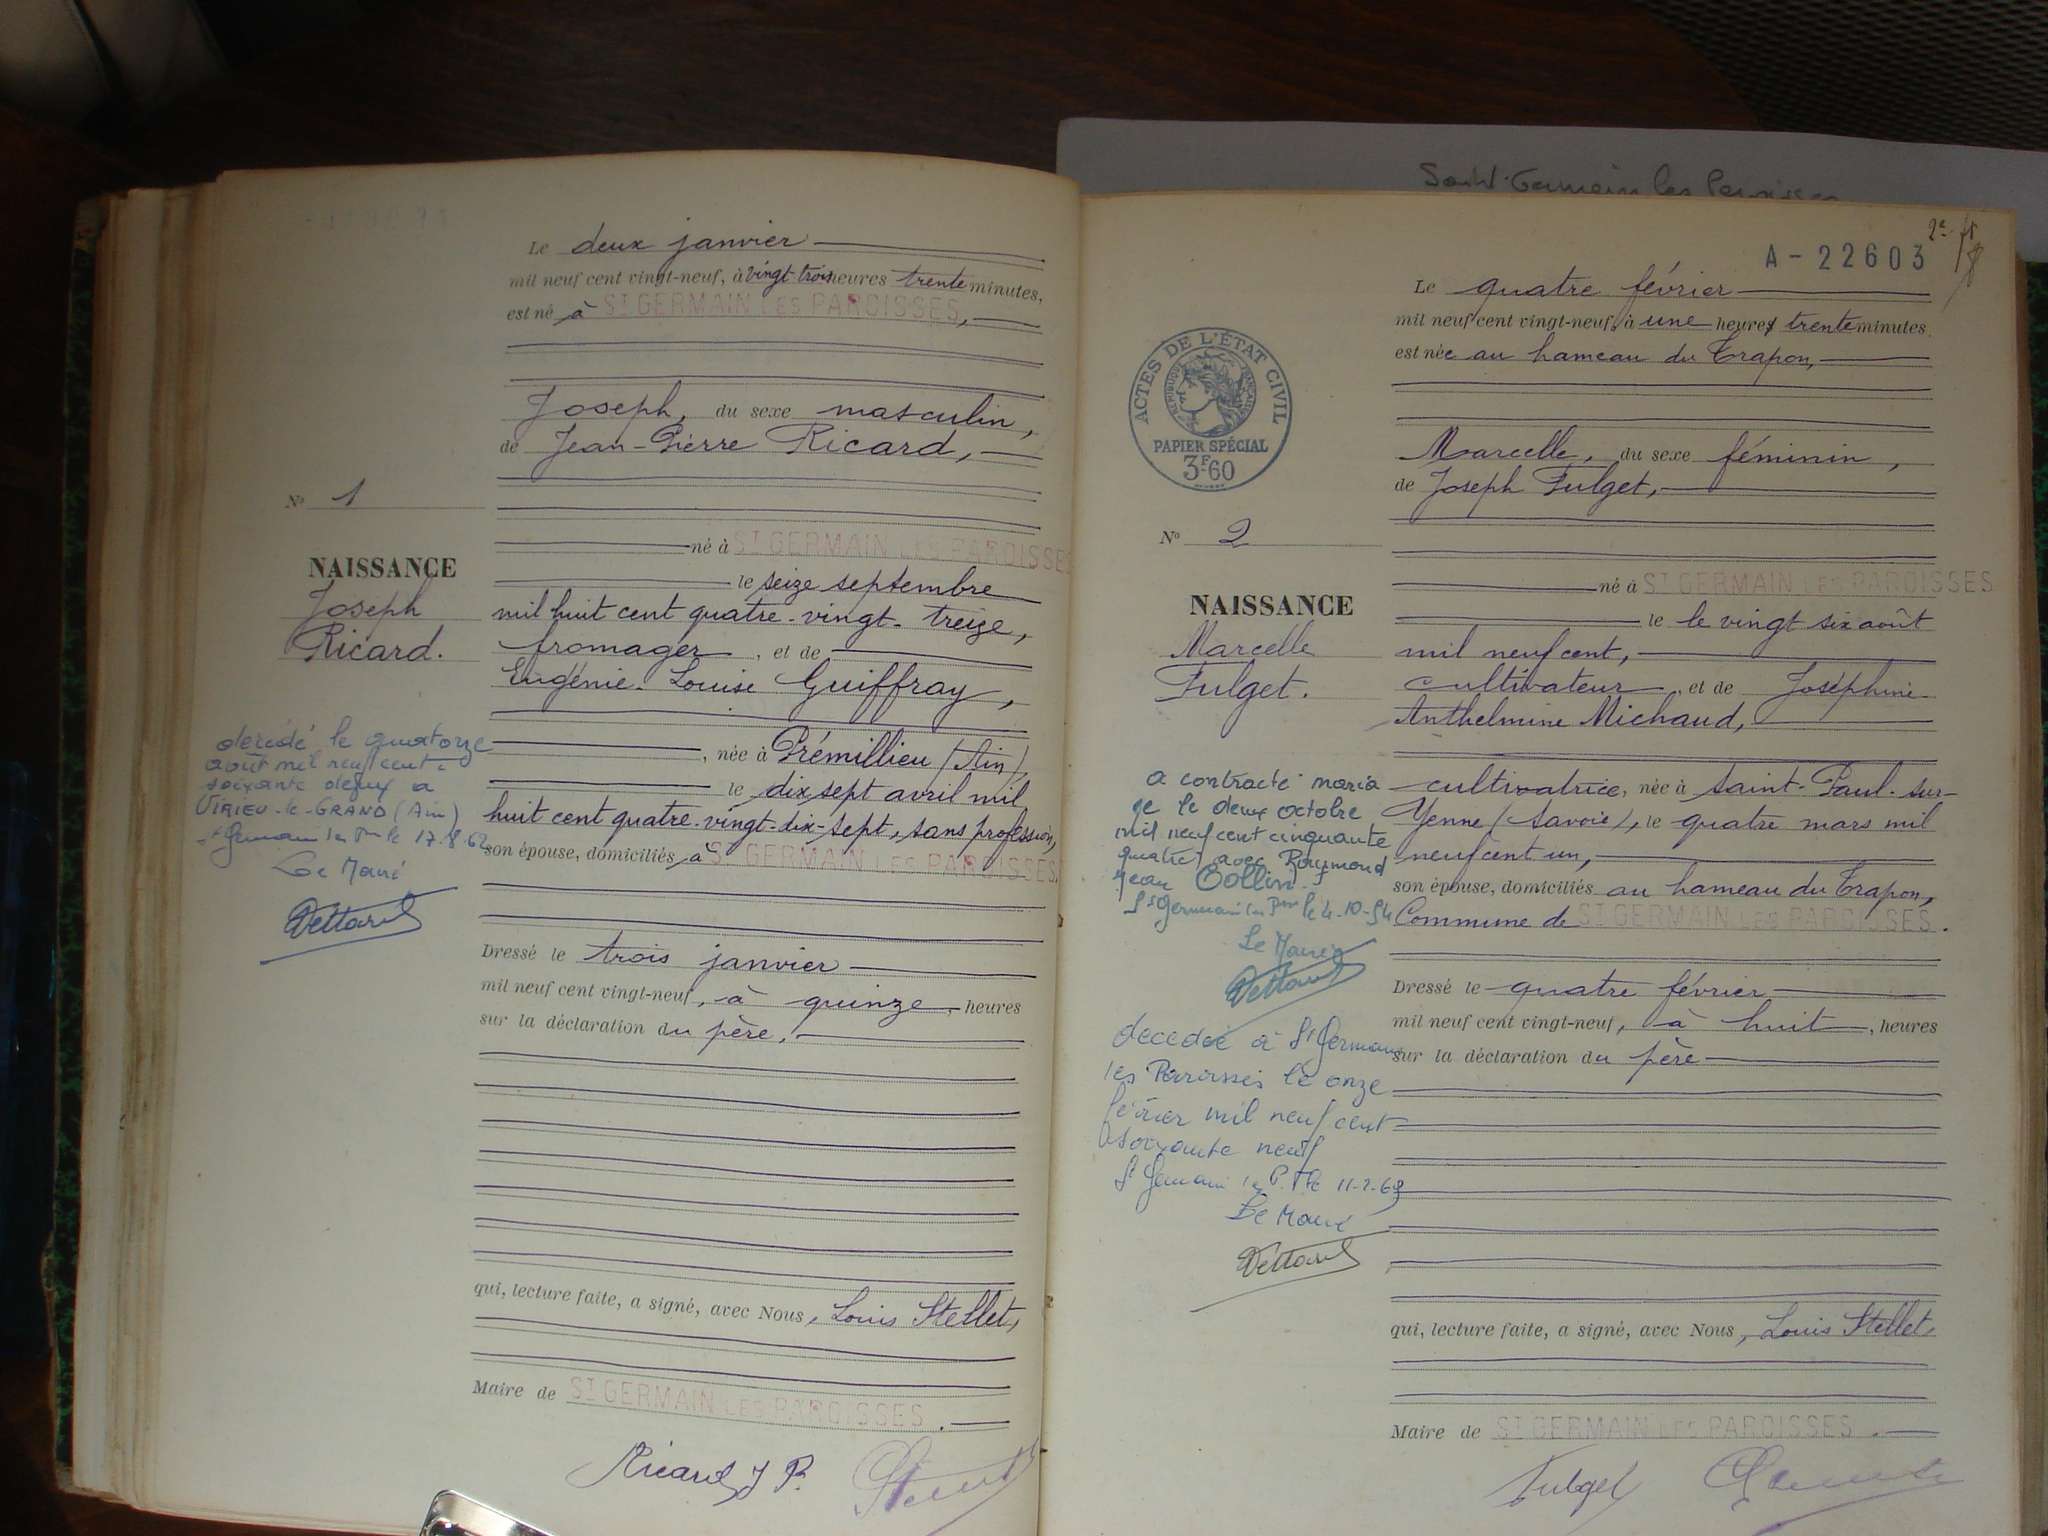 Le deux janvier
mil neuf cent vingt-neuf, à vingt-trois heures trente minutes,
est né à ST GERMAIN LES PAROISSES,
Joseph, du sexe masculin,
de Jean-Pierre Ricard,
né à ST GERMAIN LES PAROISSES
le seize septembre
mil huit cent quatre-vingt-treize,
fromager, et de
Eugénie-Louise Guiffray,
, née à Prémillieu (Ain),
le dix sept avril mil
huit cent quatre-vingt-dix-sept, sans profession,
son épouse, domiciliés à ST GERMAIN LES PAROISSES.
Dressé le trois janvier
mil neuf cent vingt-neuf, à quinze heures
sur la déclaration du père,
qui, lecture faite, a signé, avec Nous, Louis Stellet,
Maire de ST GERMAIN LES PAROISSES.
Ricard J P.
No 1
NAISSANCE
Joseph
Ricard.
décédé le quatorze
août mil neuf cent
soixante deux a
VIRIEU-le-GRAND (Ain)
St Germain les Pses le 17.8.62
Le Maire
Saint-Germain les Paroisses
2e
A-22603
Le quatre février
mil neuf cent vingt-neuf, à une heure trente minutes
est née au hameau du Trapon,
Marcelle, du sexe féminin,
de Joseph Fulget,
né à ST GERMAIN LES PAROISSES
le le vingt six août
mil neuf cent,
cultivateur, et de Joséphine
Anthelmine Michaud,
cultivatrice, née à Saint-Paul-sur-
Yenne (Savoie), le quatre mars mil
neuf cent un,
son épouse, domiciliés au hameau du Trapon,
Commune de ST GERMAIN LES PAROISSES.
Dressé le quatre février
mil neuf cent vingt-neuf, à huit, heures
sur la déclaration du père
qui, lecture faite, a signé, avec Nous, Louis Stellet,
Maire de ST GERMAIN LES PAROISSES.
Fulget
ACTES DE L'ÉTAT CIVIL
RÉPUBLIQUE FRANÇAISE
PAPIER SPÉCIAL
3F60
No 2
NAISSANCE
Marcelle
Fulget.
a contracté maria
ge le deux octobre
mil neuf cent cinquante
quatre avec Raymond
Jean Collin
St Germain les Pses le 4-10-54
Le Maire
décédée à St Germain
les Paroisses le onze
février mil neuf cent
soixante neuf
St Germain les P. le 11-2-69
Le Maire